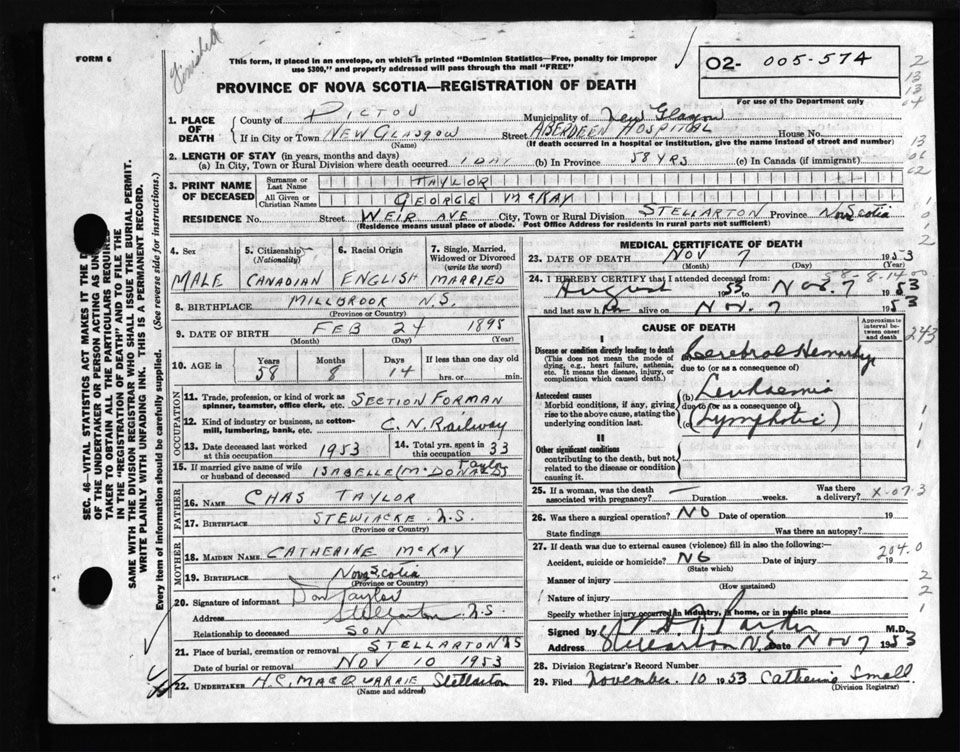 Finished
FORM 6
This form, if placed in an envelope, on which is printed "Dominion Statistics—Free, penalty for improper
use $300," and properly addressed will pass through the mail "FREE"
02- 005-574
For use of the Department only
PROVINCE OF NOVA SCOTIA—REGISTRATION OF DEATH
1. PLACE OF DEATH
County of PICTOU Municipality of New Glasgow
If in City or Town NEW GLASGOW (Name) Street ABERDEEN HOSPITAL House No.
(If death occurred in a hospital or institution, give the name instead of street and number)
2. LENGTH OF STAY (in years, months and days)
(a) In City, Town or Rural Division where death occurred 1 DAY (b) In Province 58 YRS (c) In Canada (if immigrant)
3. PRINT NAME OF DECEASED
Surname or Last Name TAYLOR
All Given or Christian Names GEORGE McKAY
RESIDENCE No. Street WEIR AVE City, Town or Rural Division STELLARTON Province Nova Scotia
(Residence means usual place of abode. Post Office Address for residents in rural parts not sufficient)
4. Sex MALE
5. Citizenship (Nationality) CANADIAN
6. Racial Origin ENGLISH
7. Single, Married, Widowed or Divorced (write the word) MARRIED
8. BIRTHPLACE MILLBROOK N.S.
(Province or Country)
9. DATE OF BIRTH FEB 24 1895
(Month) (Day) (Year)
10. AGE in Years 58 Months 8 Days 14 If less than one day old hrs. or min.
OCCUPATION
11. Trade, profession, or kind of work as spinner, teamster, office clerk, etc. SECTION FORMAN
12. Kind of industry or business, as cotton-mill, lumbering, bank, etc. C.N. Railway
13. Date deceased last worked at this occupation 1953
14. Total yrs. spent in this occupation 33
15. If married give name of wife or husband of deceased ISABELLE (McDONALD) Taylor
FATHER
16. NAME CHAS TAYLOR
17. BIRTHPLACE STEWIACKE N.S.
(Province or Country)
MOTHER
18. MAIDEN NAME CATHERINE McKAY
19. BIRTHPLACE Nova Scotia
(Province or Country)
20. Signature of informant Don Taylor
Address Stellarton N.S.
Relationship to deceased SON
21. Place of burial, cremation or removal STELLARTON NS
Date of burial or removal NOV 10 1953
22. UNDERTAKER H.C. MACQUARRIE Stellarton
(Name and address)
MEDICAL CERTIFICATE OF DEATH
23. DATE OF DEATH NOV 7 1953
(Month) (Day) (Year)
58-8-14
24. I HEREBY CERTIFY that I attended deceased from:
August 1953 to Nov. 7 1953
and last saw h alive on Nov. 7 1953
CAUSE OF DEATH
Approximate interval between onset and death
243
I
Disease or condition directly leading to death
(This does not mean the mode of dying, e.g., heart failure, asthenia, etc. It means the disease, injury, or complication which caused death.)
Cerebral Hemorrhage
due to (or as a consequence of)
Antecedent causes
Morbid conditions, if any, giving rise to the above cause, stating the underlying condition last.
(b) Leukaemia
due to (or as a consequence of)
(c) (Lymphatic)
II
Other significant conditions
contributing to the death, but not related to the disease or condition causing it.
25. If a woman, was the death associated with pregnancy? — Duration weeks. Was there a delivery?
X-07-3
26. Was there a surgical operation? NO Date of operation 19
State findings Was there an autopsy?
27. If death was due to external causes (violence) fill in also the following:—
204.0
Accident, suicide or homicide? NO Date of injury 19
(State which)
Manner of injury
(How sustained)
Nature of injury
Specify whether injury occurred in industry, in home, or in public place
Signed by Parker M.D.
Address Stellarton N.S. Nov 7 1953
28. Division Registrar's Record Number
29. Filed November 10 1953 Catherine Small
(Division Registrar)
SEC. 46—VITAL STATISTICS ACT MAKES IT THE
OF THE UNDERTAKER OR PERSON ACTING AS
TAKER TO OBTAIN ALL THE PARTICULARS REQUIRED
IN THE "REGISTRATION OF DEATH" AND TO FILE THE
SAME WITH THE DIVISION REGISTRAR WHO SHALL ISSUE THE BURIAL PERMIT.
WRITE PLAINLY WITH UNFADING INK. THIS IS A PERMANENT RECORD.
Every item of information should be carefully supplied. (See reverse side for instructions.)